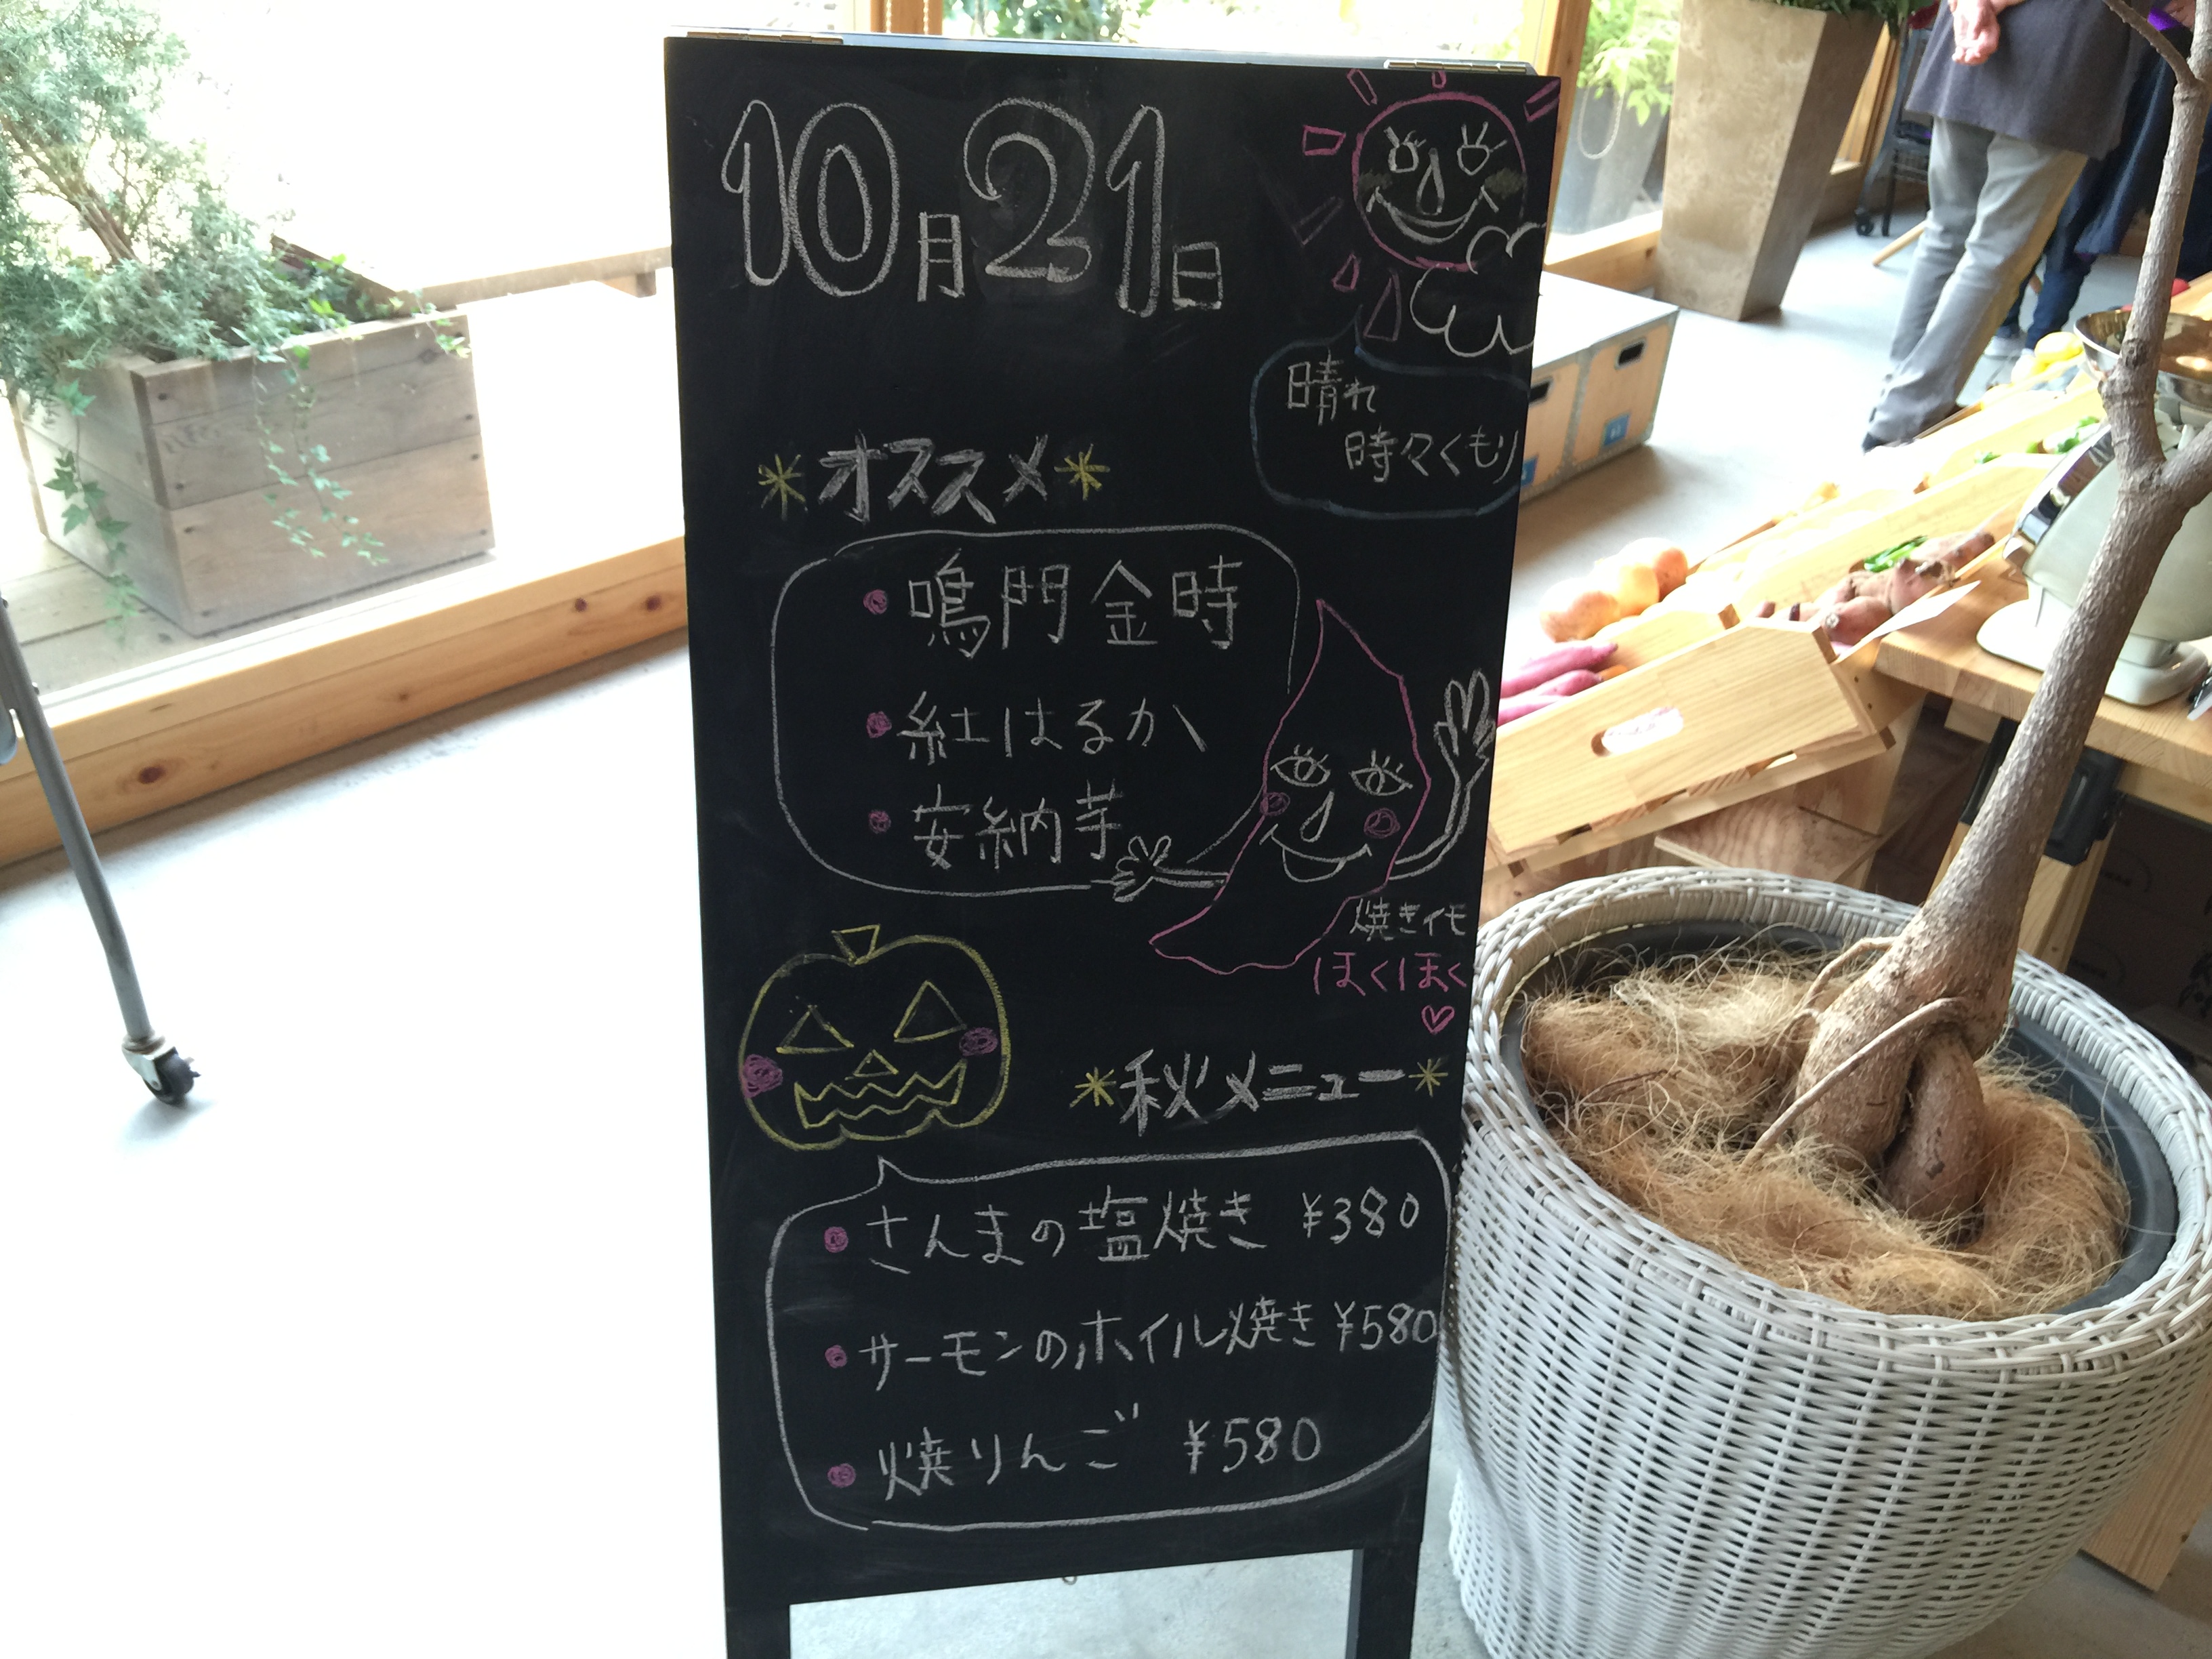 10月21日
晴れ
時々くもり
オススメ
鳴門金時
紅はるか
安納芋
焼きイモ
ほくほく
秋メニュー
さんまの塩焼き ¥380
サーモンのホイル焼き ¥580
焼りんご ¥580